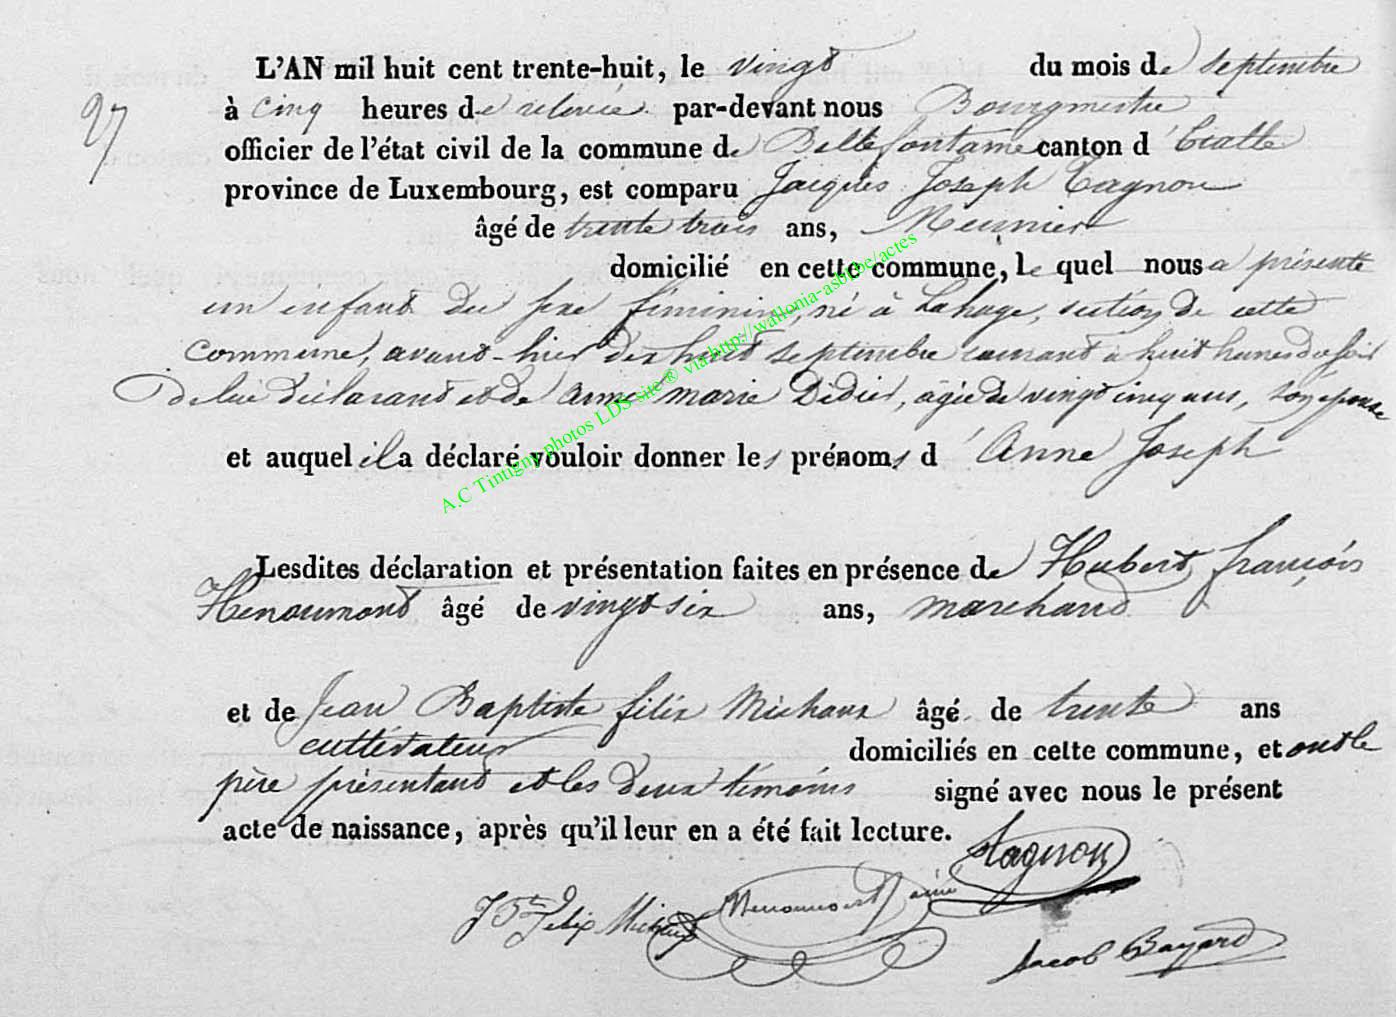 27
L'AN mil huit cent trente-huit, le vingt du mois de septembre
à cinq heures de relevée par-devant nous Bourgmestre
officier de l'état civil de la commune de Bellefontaine canton d'Etalle
province de Luxembourg, est comparu Jacques Joseph Tagnon
âgé de trente trois ans, Meunier
domicilié en cette commune, le quel nous a présenté
un enfant du sexe féminin, né à Lahage, section de cette
commune, avant-hier dix huit septembre courant à huit heures du soir
De lui déclarant et de Anne Marie Didier, âgée de vingt cinq ans, son épouse
et auquel il a déclaré vouloir donner les prénoms d'Anne Joseph
Lesdites déclaration et présentation faites en présence de Hubert François
âgé de vingt six ans, marchand
et de Jean Baptiste félix Michaux âgé de trente ans
cultivateur domiciliés en cette commune, et ont le
père présentant et les deux témoins signé avec nous le présent
acte de naissance, après qu'il leur en a été fait lecture.
Tagnon
J Bte Felix Michaux
Jacob Bayard
A.C Tintigny photos LDS site® via http://wallonia-asbl.be/actes